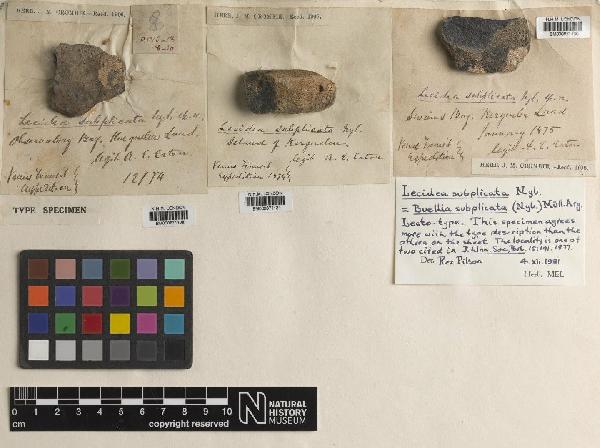 HERB. J. M. CROMBIE.—Recd. 1906.
Lecidea subplicata Nyl.
Observatory Bay,
Legit A. E. Eaton.
Venus Transit
Expedition
12/74
TYPE SPECIMEN
N.H.M. LONDON
HERB. J. M. CROMBIE. Recd. 1906.
Lecidea subplicata Nyl.
Island of Kerguelen.
Legit A. E. Eaton
Venus Transit
Expedition 1874
N.H.M. LONDON
N.H.M. LONDON
Lecidea subplicata Nyl.
Swains Bay, Kerguelen Land
January 1875
Venus Transit
Expedition
Legit A. E. Eaton
HERB. J. M. CROMBIE.—Recd. 1906.
Lecidea subplicata Nyl.
= Buellia subplicata (Nyl.) Müll. Arg.
Lecto-type. This specimen agrees
more with the type description than the
others on the sheet. The locality is one of
two cited in J. Linn. Soc., Bot. 15: 1877.
Det. Rex Filson 4.xii.1981
Herb. MEL
0 1 2 3 4 5 6 7 8 9 10
cm
NATURAL
HISTORY
MUSEUM